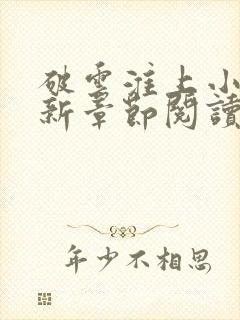 破雲淮上小
新章節閱讀
年少不相思